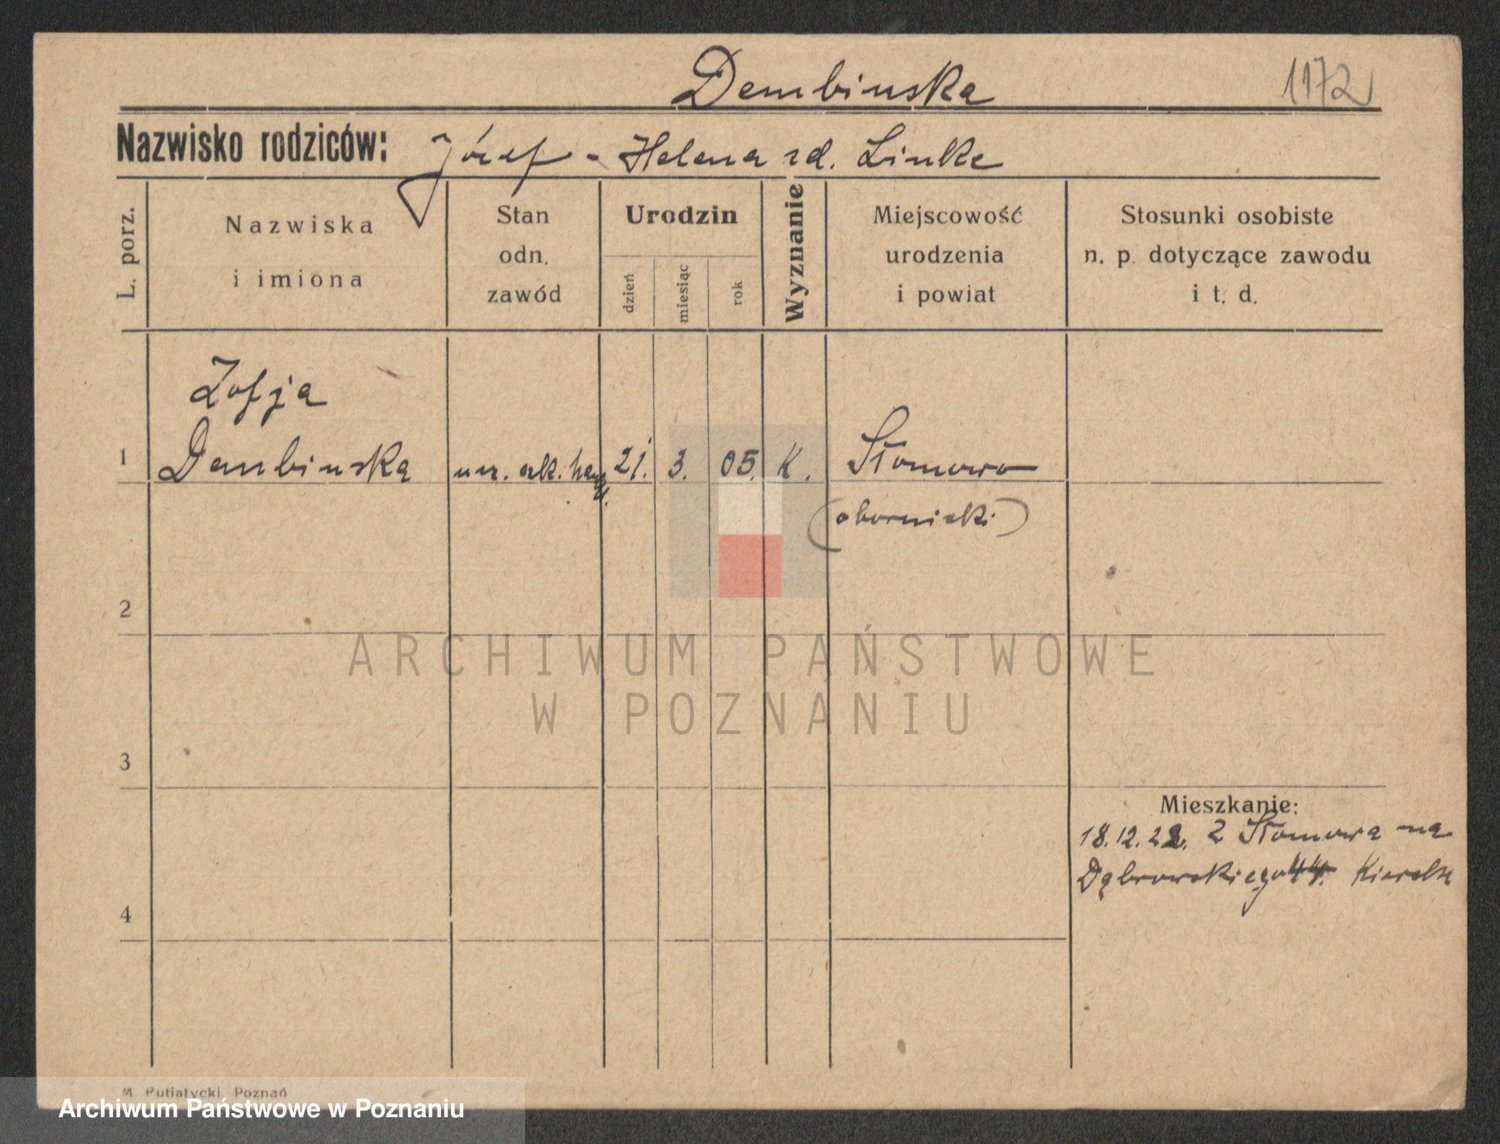 Dembinska
1172
Nazwisko rodziców: Józef - Helena zd. Linke
L. porz.
Nazwiska
i imiona
Stan
odn.
zawód
Urodzin
dzień
miesiąc
rok
Wyznanie
Miejscowość
urodzenia
i powiat
Stosunki osobiste
n. p. dotyczące zawodu
i t. d.
Zofja
1 Dembinska ucz. szk. hand. 21. 3. 05. K. Słomowo
(obornicki)
2
ARCHIWUM PAŃSTWOWE
W POZNANIU
3
Mieszkanie:
18.12.22. z Słomowa na
Dąbrowskiego 44.
4
M. Putiatycki, Poznań
Archiwum Państwowe w Poznaniu